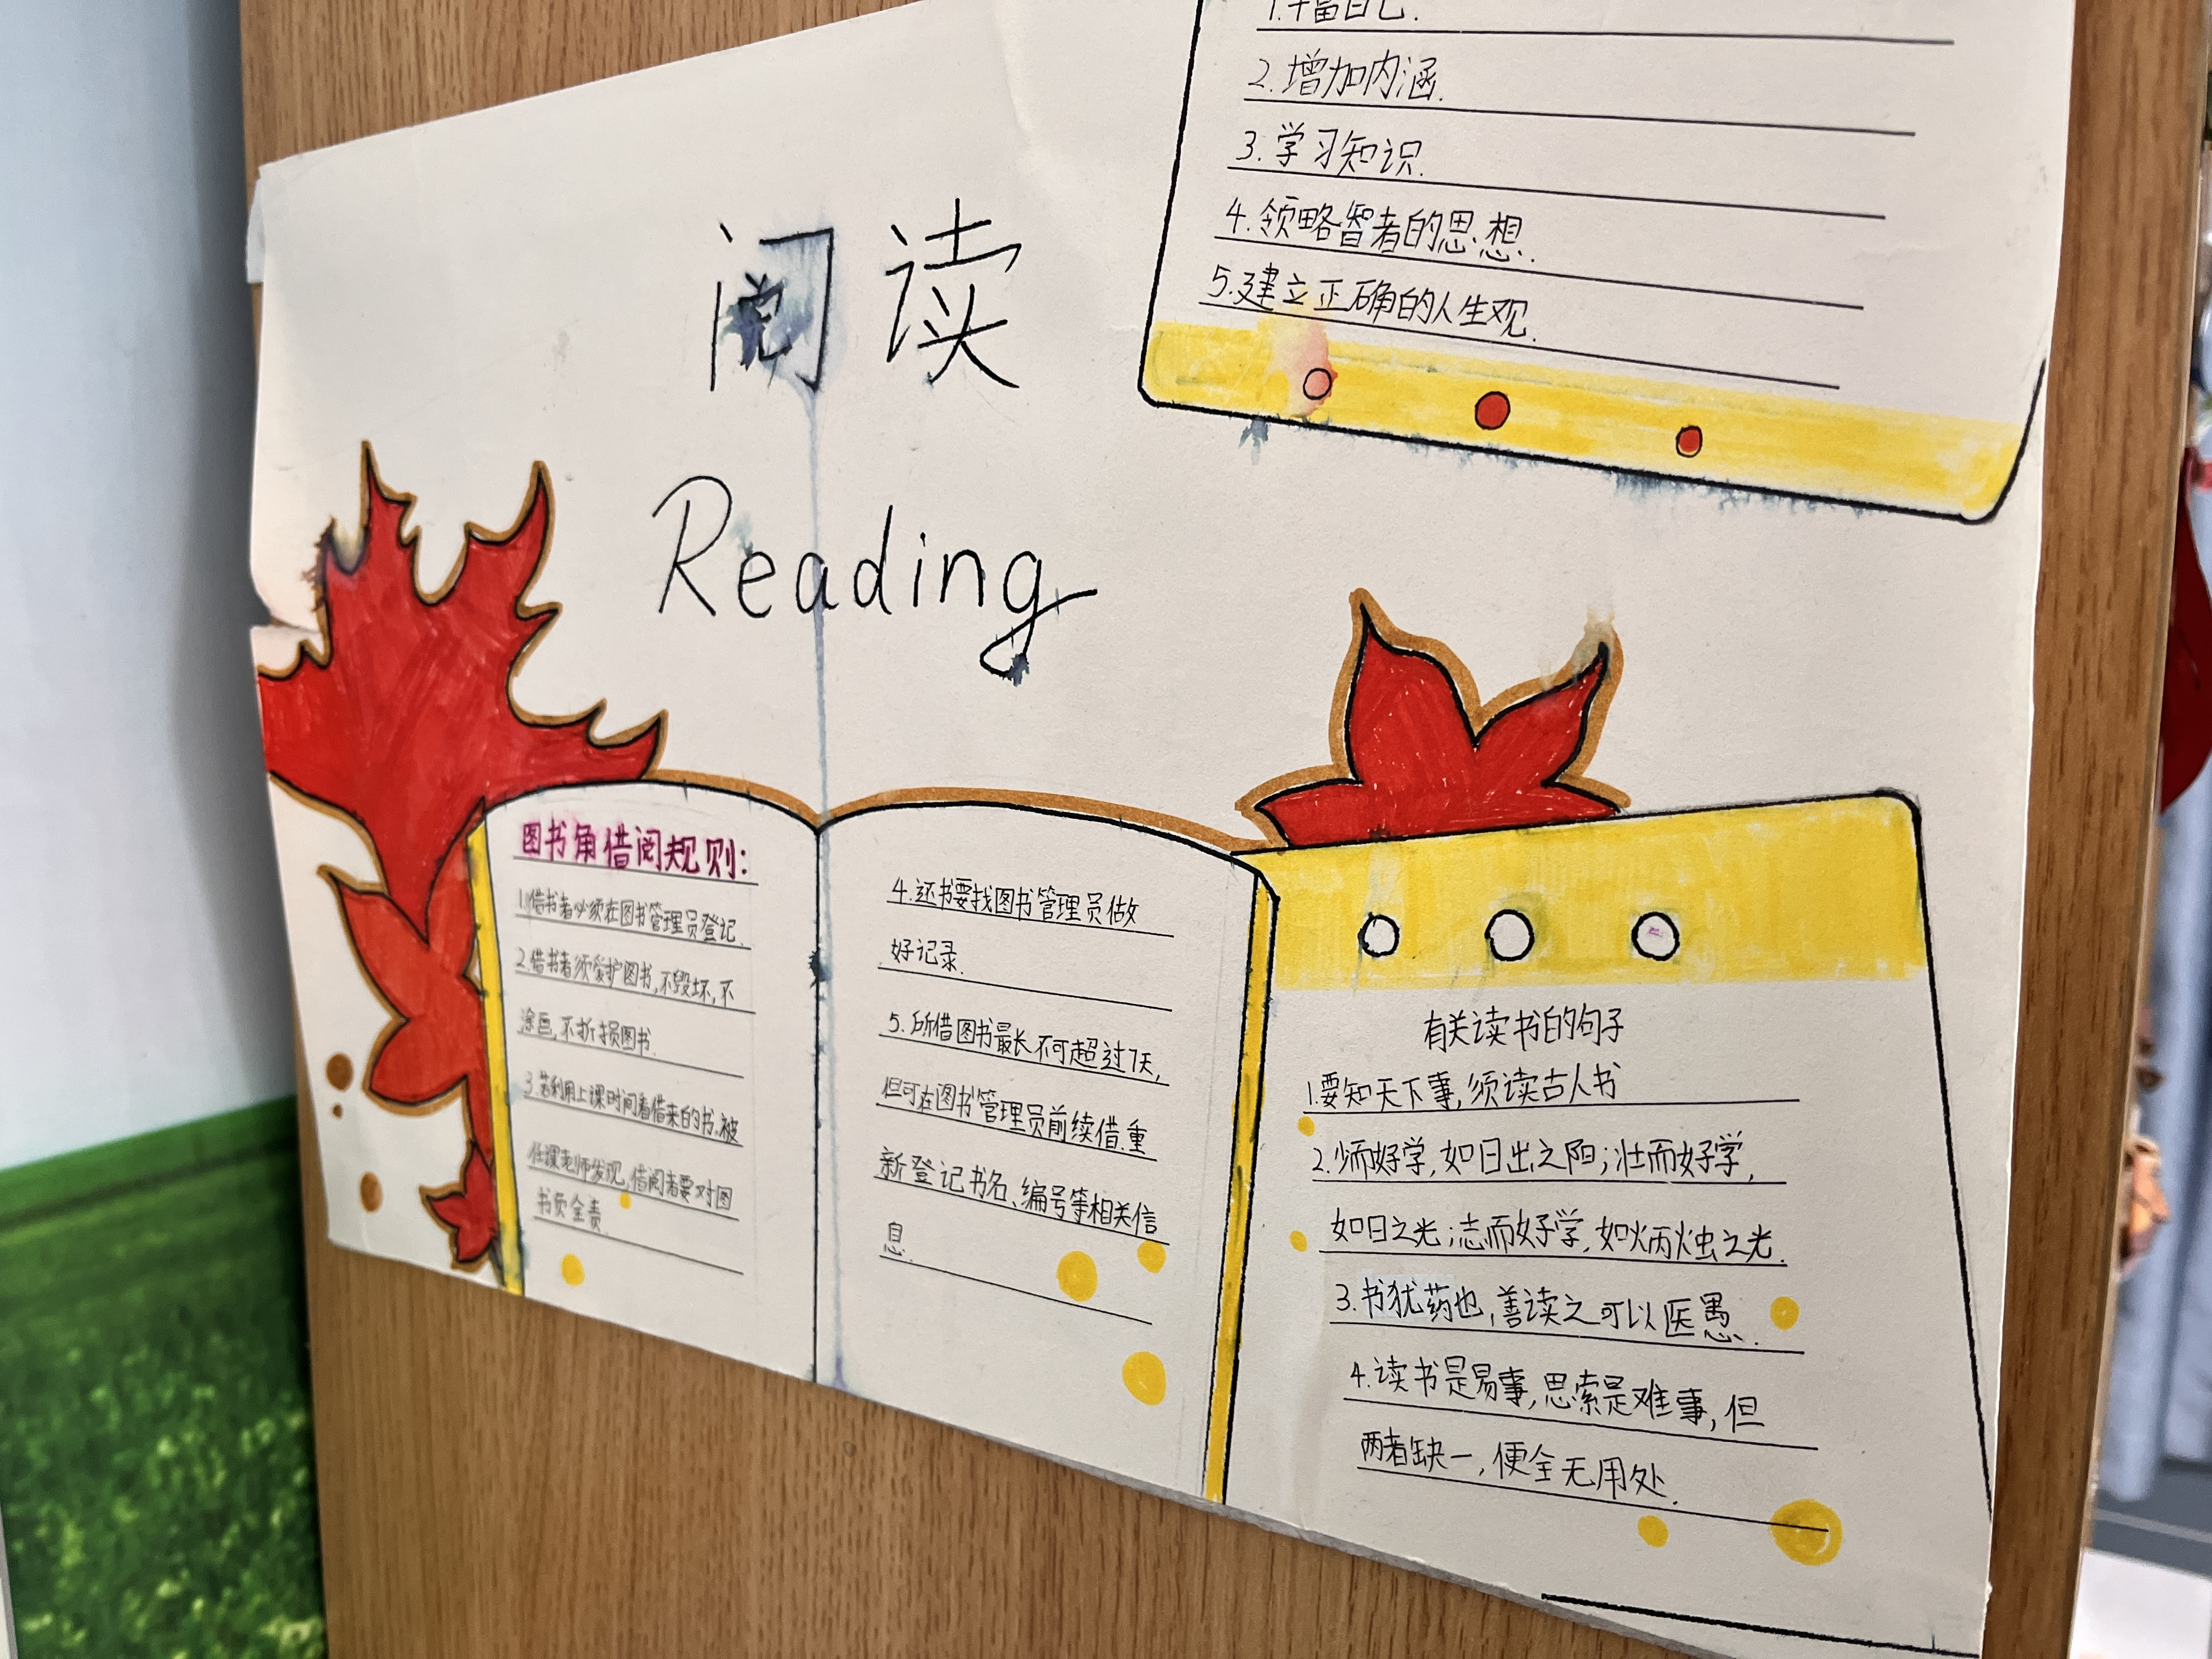 2.增加内涵.
3.学习知识.
4.领略智者的思想.
5.建立正确的人生观.
阅读
Reading
图书角借阅规则:
1.借书者必须在图书管理员登记.
2.借书者须爱护图书,不毁坏,不
涂画,不折损图书.
3.若利用上课时间看借来的书,被
任课老师发现,借阅者要对图
书负全责.
4.还书要找图书管理员做
好记录.
5.所借图书最长不可超过7天,
但可在图书管理员前续借.重
新登记书名、编号等相关信
息.
有关读书的句子
1.要知天下事,须读古人书
2.少而好学,如日出之阳;壮而好学,
如日之光;志而好学,如炳烛之光.
3.书犹药也,善读之可以医愚.
4.读书是易事,思索是难事,但
两者缺一,便全无用处.